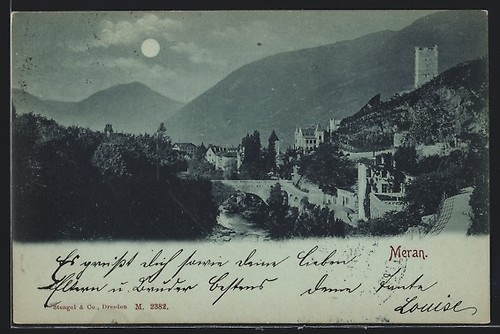 Meran.
Es grüßt dich sowie deine lieben
Eltern u. Bruder bestens deine Tante
Louise
Stengel & Co., Dresden M. 2382.